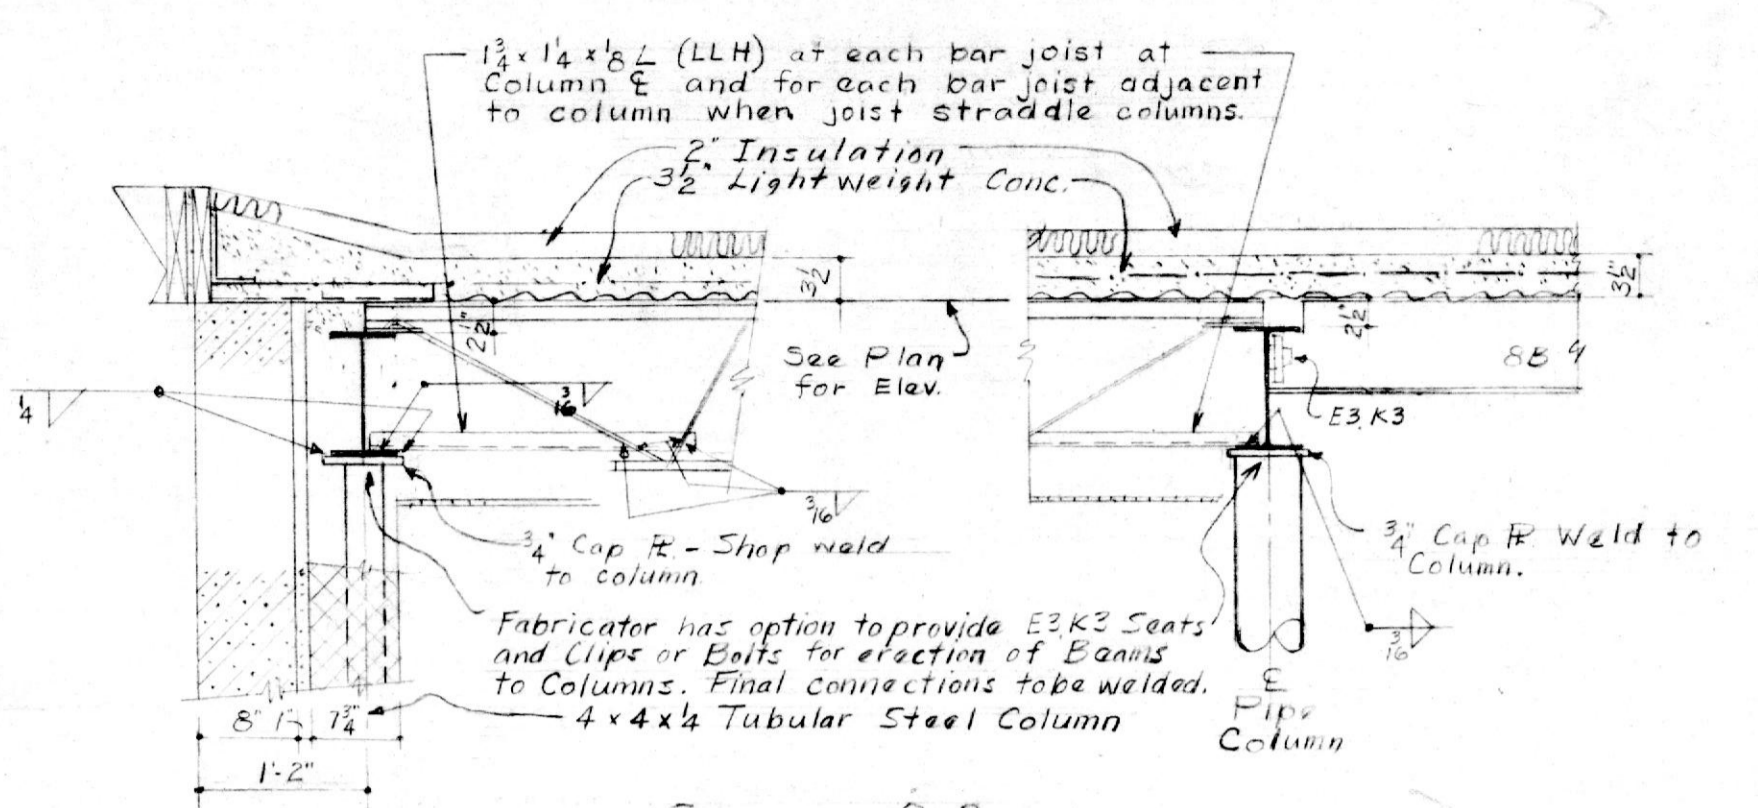 1 3/4 x 1 1/4 x 1/8 L (LLH) at each bar joist at
Column ℄ and for each bar joist adjacent
to column when joist straddle columns.
2" Insulation
3 1/2" Lightweight Conc.
3 1/2
3 1/2"
2 1/2"
2 1/2"
See Plan
for Elev.
8B
E3.K3
1/4
3/16
3/16
3/4" Cap ℄ - Shop weld
to column
3/4" Cap ℄ Weld to
Column.
Fabricator has option to provide E3.K3 Seats
and Clips or Bolts for erection of Beams
to Columns. Final connections to be welded.
3/16
4 x 4 x 1/4 Tubular Steel Column
℄
Pipe
Column
8" 1" 7 3/4"
1'-2"